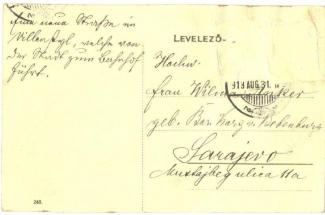 Eine neue Straße im
Villenstyl, welche von
der Stadt zum Bahnhof
führt.
LEVELEZŐ-
Hochw.
Frau Wilma
geb. von
Sarajevo
Mustajbegulica 11a
913 AUG 21
248.